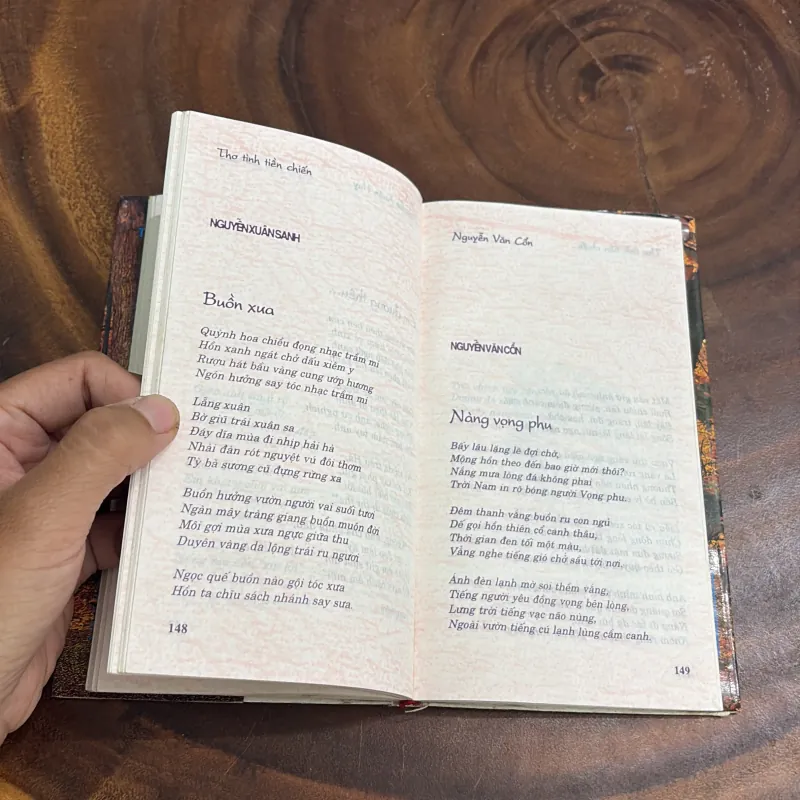 Thơ tình tiền chiến
NGUYỄN XUÂN SANH
Buồn xua
Quỳnh hoa chiều đọng nhạc trầm mi
Hồn xanh ngát chở dấu xiêm y
Rượu hát bầu vàng cung ướp hương
Ngón hưởng say tóc nhạc trầm mi
Lẵng xuân
Bờ giũ trái xuân sa
Đáy dĩa mùa đi nhịp hải hà
Nhài đàn rót nguyệt vú đôi thơm
Tỳ bà sương cũ đựng rừng xa
Buồn hưởng vườn người vai suối tươi
Ngàn mây tràng giang buồn muôn đời
Môi gợi mùa xưa ngực giữa thu
Duyên vàng da lộng trái du người
Ngọc quế buồn nào gội tóc xưa
Hồn ta chìu sách nhánh say sưa.
148
Nguyễn Văn Cổn
NGUYỄN VĂN CỔN
Nàng vọng phu
Bấy lâu lặng lẽ đợi chờ,
Mộng hồn theo đến bao giờ mới thôi?
Nắng mưa lòng đá không phai
Trời Nam in rõ bóng người Vọng phu.
Đêm thanh vắng buồn ru con ngủ
Dế gọi hồn thiên cổ canh thâu,
Thời gian đen tối một màu,
Vẳng nghe tiếng gió chở sầu tới nơi.
Ánh đèn lạnh mờ soi thềm vắng,
Tiếng người yêu đồng vọng bên lòng,
Lưng trời tiếng vạc não nùng,
Ngoài vườn tiếng cú lạnh lùng cầm canh.
149